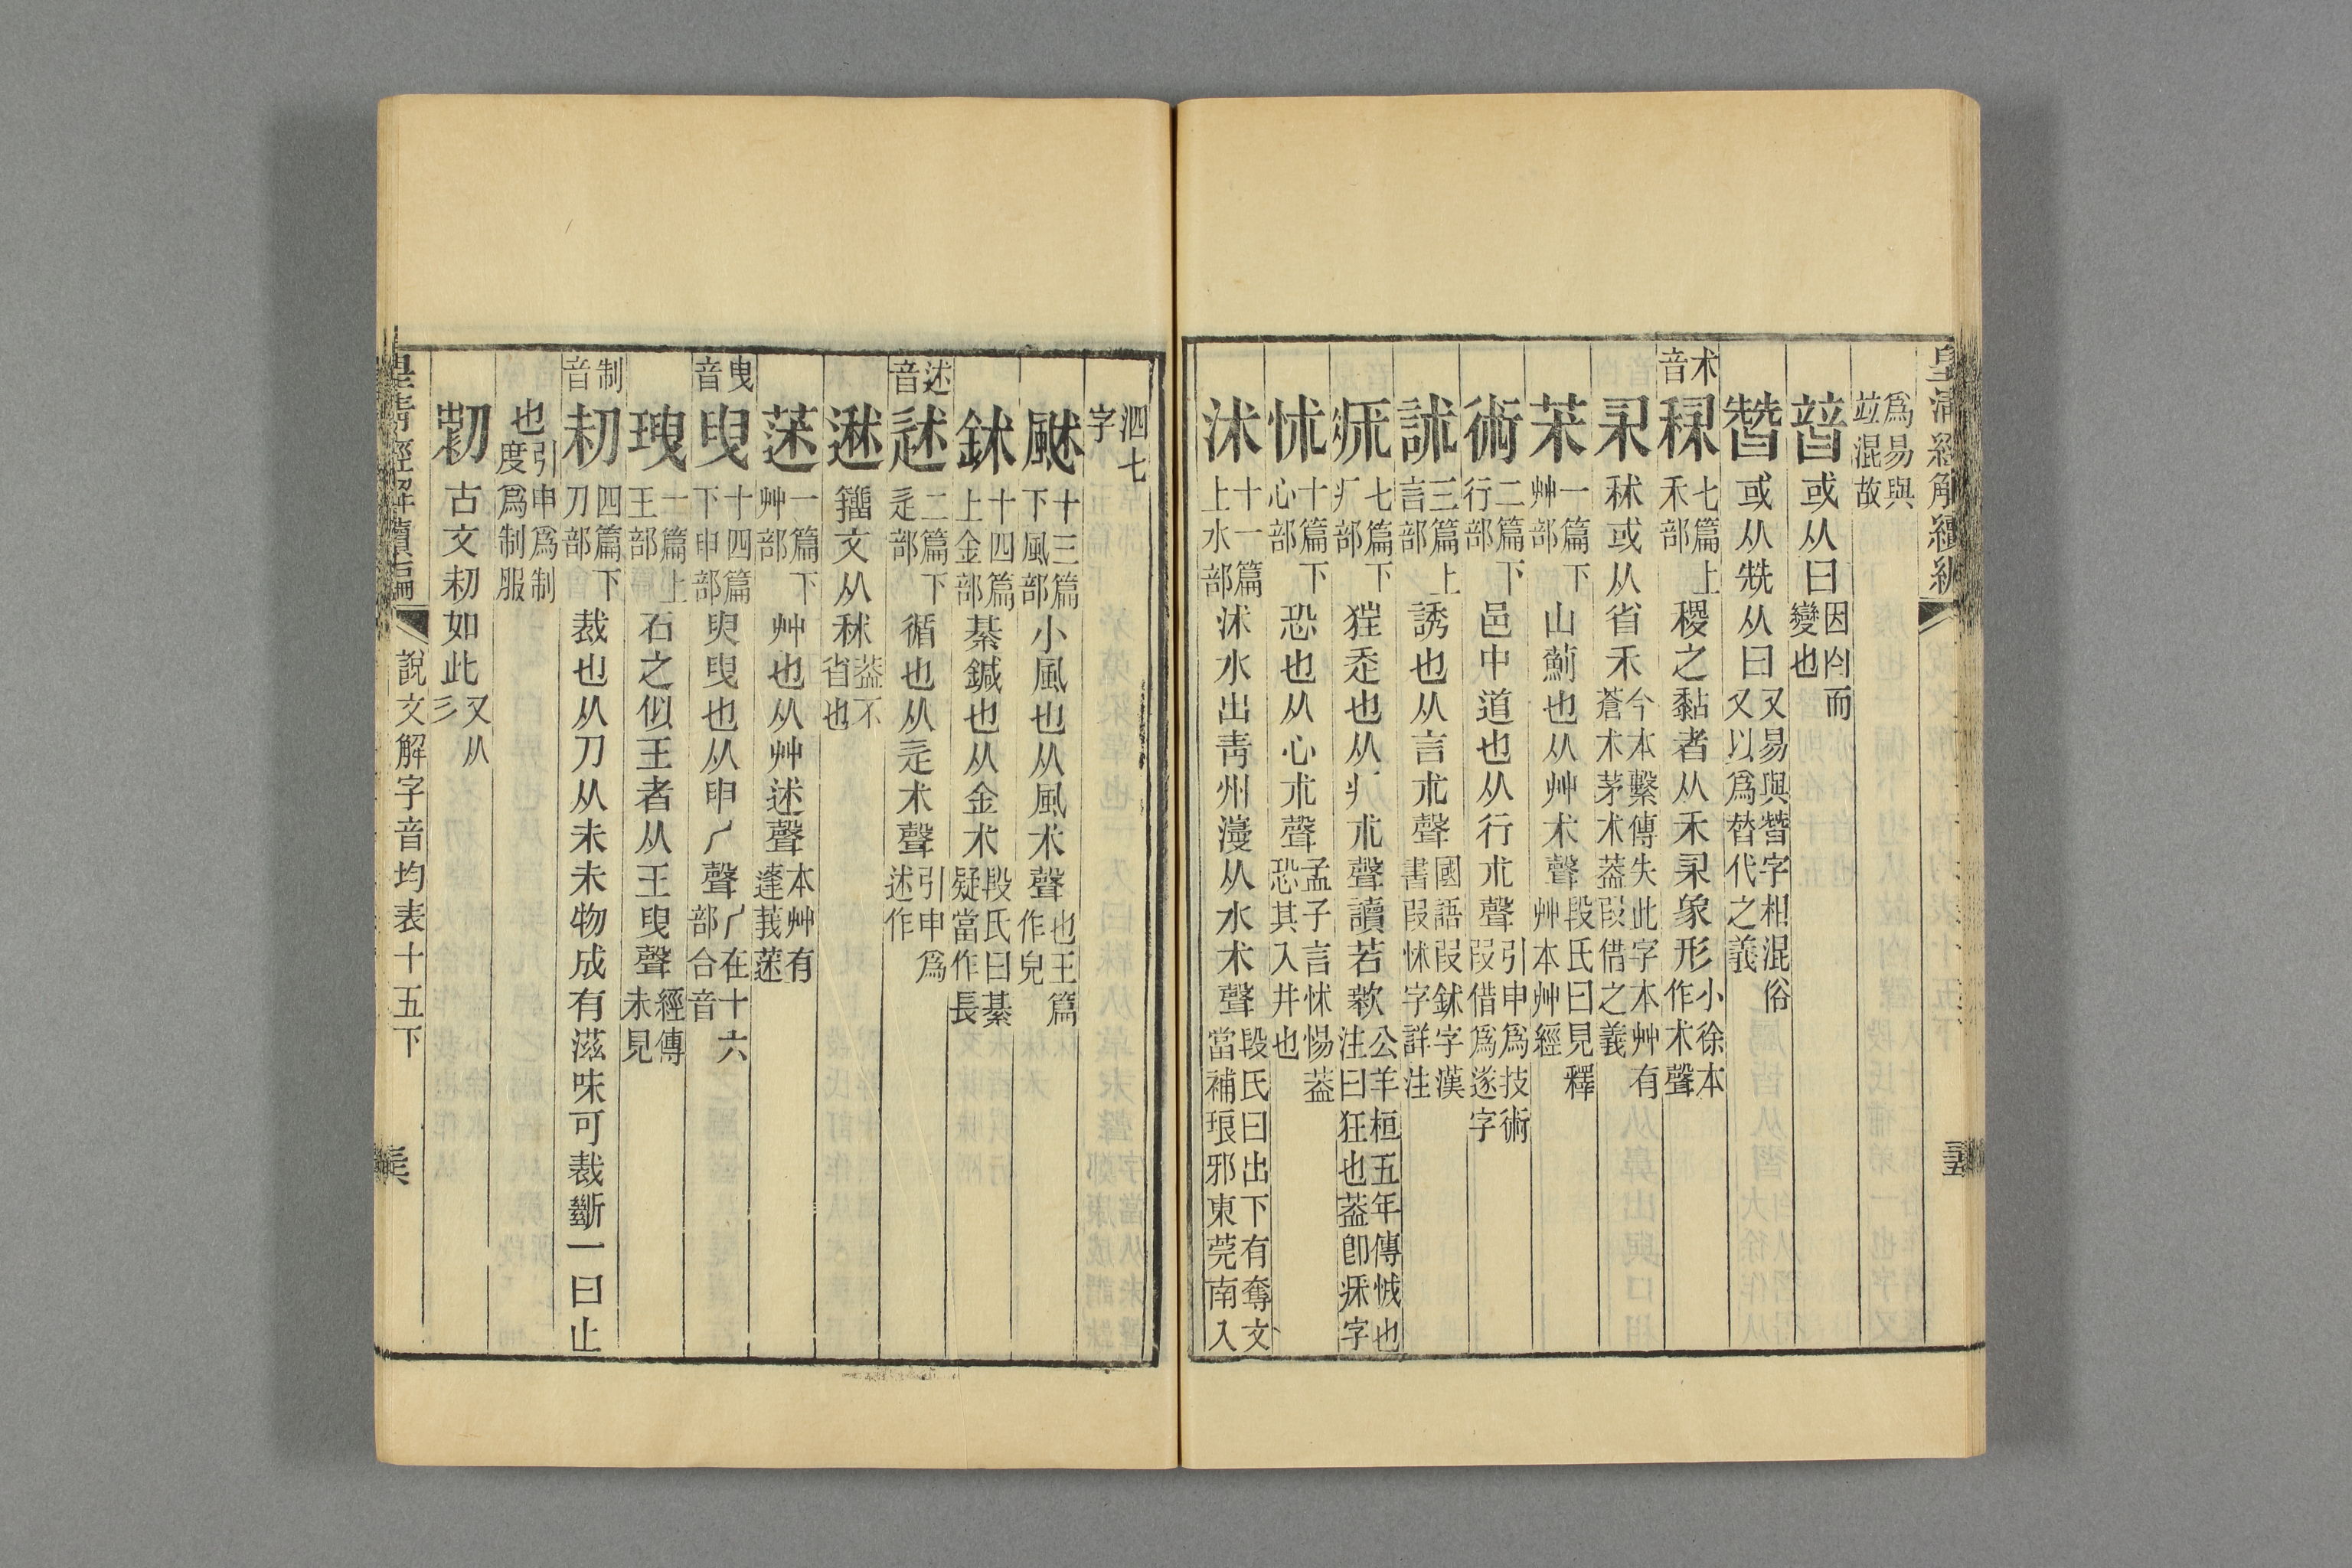 皇清經解續編
爲易與竝混故
暜或从曰因囟而變也
朁或从兟从曰又易與朁字相混俗又以爲替代之義
术音
秫七篇上禾部稷之黏者从禾朮象形小徐本作术聲
朮秫或从省禾今本繫傳失此字本艸有蒼术茅术葢叚借之義
茱一篇下艸部山薊也从艸术聲段氏曰見釋艸本艸經
術二篇下行部邑中道也从行朮聲引申爲技術叚借爲遂字
訹三篇上言部誘也从言朮聲國語叚鉥字漢書叚怵字詳注
疧七篇下疒部狴𤵺也从疒朮聲讀若欻公羊桓五年傳怴也注曰狂也葢卽疧字
怵十篇下心部恐也从心朮聲孟子言怵惕葢恐其入井也
沭十一篇上水部沭水出靑州濅从水术聲段氏曰出下有奪文當補琅邪東莞南入
泗七字
䬍十三篇下風部小風也从風术聲也玉篇作皃
鉥十四篇上金部綦鍼也从金术段氏曰綦疑當作長
述音
述二篇下辵部循也从辵术聲引申爲述作
𨔥籒文从秫葢不省也
蒁一篇下艸部艸也从艸述聲本艸有蓬莪蒁
曳音
曳十四篇下申部臾曳也从申丿聲丿在十六部合音
𤤺一篇上王部石之似王者从王曳聲經傳未見
制音
制四篇下刀部裁也从刀从未未物成有滋味可裁斷一曰止
也引申爲制度爲制服
𠛐古文制如此又从彡
皇清經解續編　說文解字音均表十五下